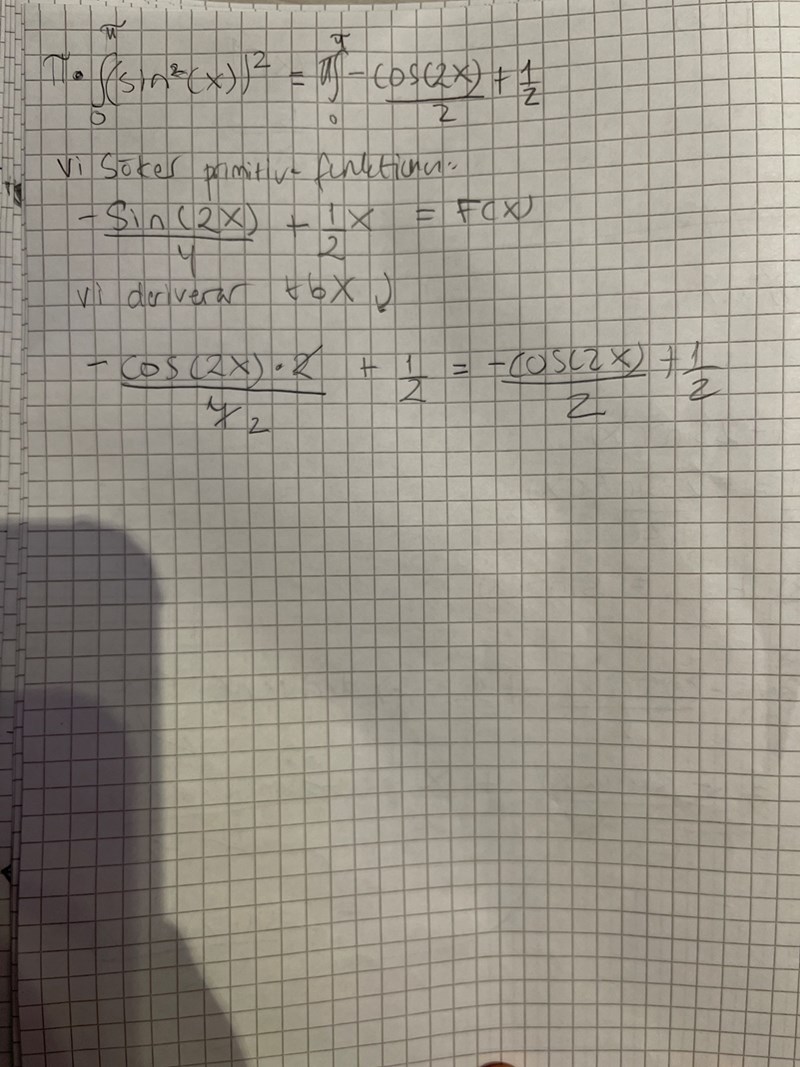 π · ∫₀^π (sin²(x))² = π ∫₀^π -cos(2x)/2 + 1/2
vi söker primitiv funktionen:
-sin(2x)/4 + 1/2 x = F(x)
vi deriverar F(x)
-cos(2x)·2/4 2 + 1/2 = -cos(2x)/2 + 1/2